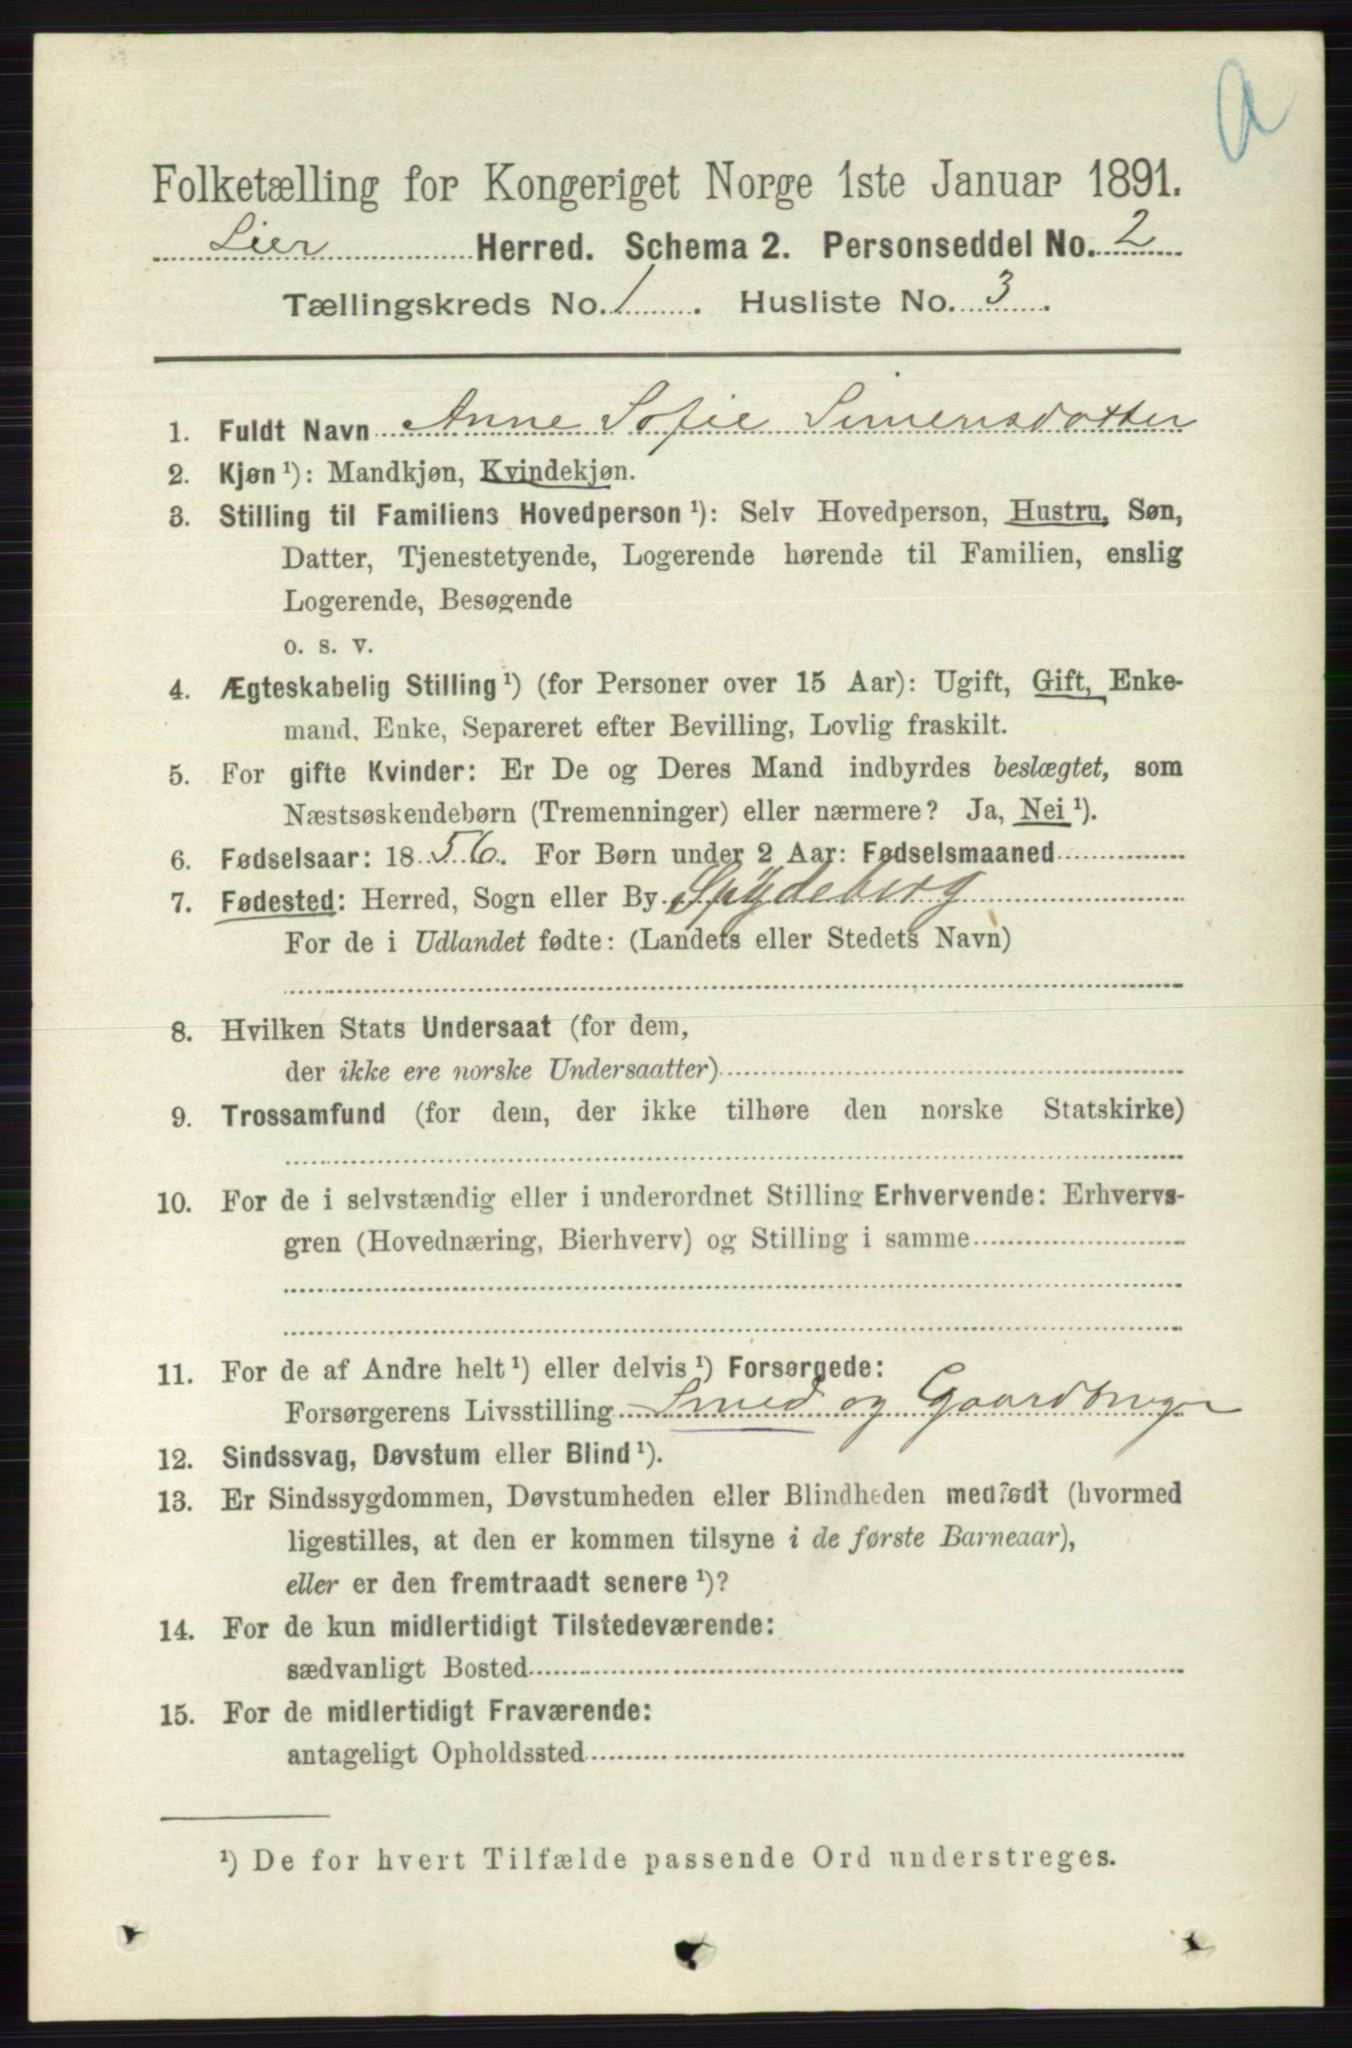 a
Folketælling for Kongeriget Norge 1ste Januar 1891.
Lier Herred. Schema 2. Personseddel No. 2
Tællingskreds No. 1. Husliste No. 3.
1. Fuldt Navn Anne Sofie Simensdatter
2. Kjøn ¹): Mandkjøn, Kvindekjøn.
3. Stilling til Familiens Hovedperson ¹): Selv Hovedperson, Hustru, Søn,
Datter, Tjenestetyende, Logerende hørende til Familien, enslig
Logerende, Besøgende
o. s. v.
4. Ægteskabelig Stilling ¹) (for Personer over 15 Aar): Ugift, Gift, Enke-
mand, Enke, Separeret efter Bevilling, Lovlig fraskilt.
5. For gifte Kvinder: Er De og Deres Mand indbyrdes beslægtet, som
Næstsøskendebørn (Tremenninger) eller nærmere? Ja, Nei ¹).
6. Fødselsaar: 1856. For Børn under 2 Aar: Fødselsmaaned
7. Fødested: Herred, Sogn eller By Spydeberg
For de i Udlandet fødte: (Landets eller Stedets Navn)
8. Hvilken Stats Undersaat (for dem,
der ikke ere norske Undersaatter)
9. Trossamfund (for dem, der ikke tilhøre den norske Statskirke)
10. For de i selvstændig eller i underordnet Stilling Erhvervende: Erhvervs-
gren (Hovednæring, Bierhverv) og Stilling i samme
11. For de af Andre helt ¹) eller delvis ¹) Forsørgede:
Forsørgerens Livsstilling Smed og Gaardbruger
12. Sindssvag, Døvstum eller Blind ¹).
13. Er Sindssygdommen, Døvstumheden eller Blindheden medfødt (hvormed
ligestilles, at den er kommen tilsyne i de første Barneaar),
eller er den fremtraadt senere ¹)?
14. For de kun midlertidigt Tilstedeværende:
sædvanligt Bosted
15. For de midlertidigt Fraværende:
antageligt Opholdssted
¹) De for hvert Tilfælde passende Ord understreges.